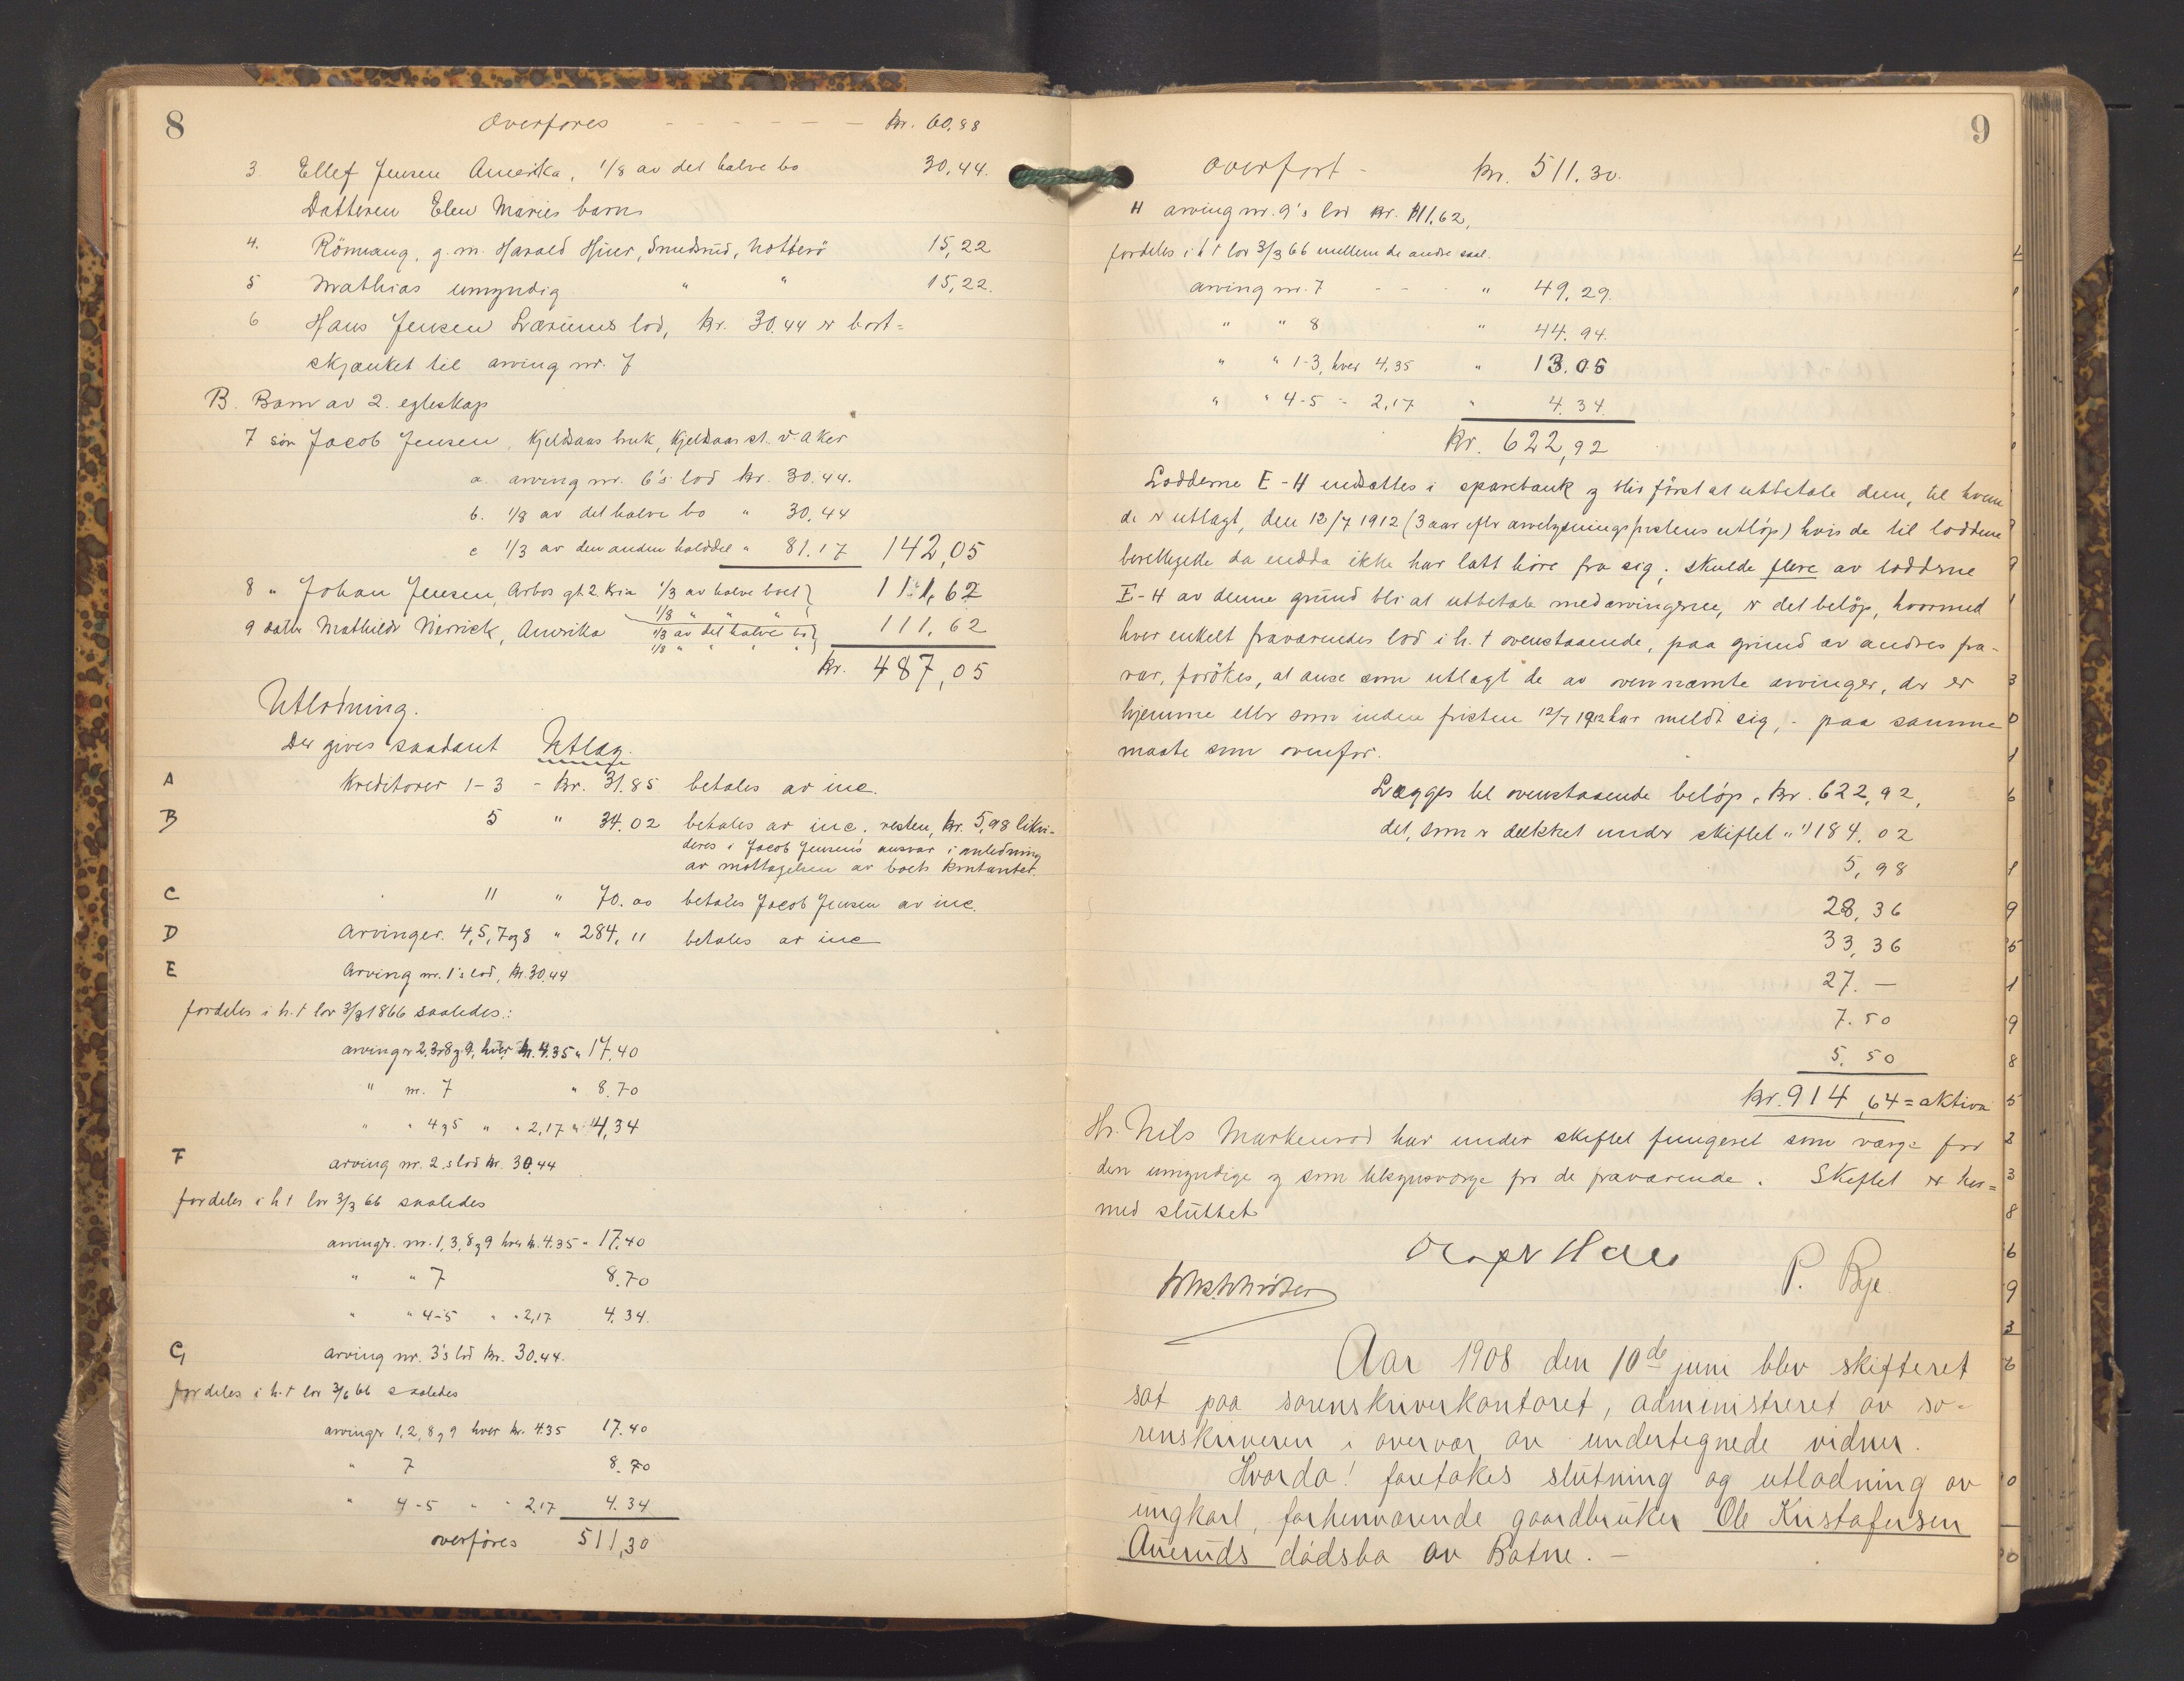 8
Overføres - - - - - - kr. 60,88
3. Ellef Jensen Amerika, 1/8 av det halve bo 30,44.
Datteren Elen Maries barn
4. Rönnaug, g. m. Harald Hjuer, Smedsrud, Nötterö 15,22
5 Mathias umyndig " " 15,22.
6 Hans Jensen Lærums lod, kr. 30,44 er bort-
skjænket til arving nr. 7
B. Barn av 2. egteskap
7 sön Jacob Jensen, Kjeldsaas bruk, Kjeldsaas st. V. Aker
a. arving nr. 6's lod kr. 30.44.
b. 1/8 av det halve bo " 30,44
c 1/3 av den anden halvdel " 81.17 142,05
8 " Johan Jensen, Arbos gt. 2 Kria 1/3 av halve boet 111,62
1/8 " " "
9 datter Mathilde Merrick, Amerika 1/3 av det halve bo 111.62
1/8 " " " "
kr. 487,05
Utlodning.
Der gives saadant Utlæg.
A Kreditorer 1-3 - kr. 31.85 betales av inc.
B 5 " 34.02 betales av inc. resten, kr. 5,98 likvi-
deres i Jacob Jensens ansvar i anledning
av mottagelsen av boets kontanter.
C 11 " 70.00 betales Jacob Jensen av inc.
D Arvinger. 4,5,7 og 8 " 284,11 betales av inc
E Arving nr. 1's lod, kr. 30,44
fordeles i h.t lov 3/3 1866 saaledes.:
arvinger 2,3,8 og 9, hver kr. 4.35 " 17.40
" nr. 7 " 8.70
" " 4 og 5 " " 2,17 " 4,34
F arving nr. 2.s lod kr. 30.44
fordeles i h t lov 3/3 66 saaledes
arvinger. nr. 1,3,8 og 9 hver kr. 4.35 " 17.40
" " 7 8.70
" " 4-5 " " 2,17 4.34.
G arving nr. 3's lod kr. 30.44.
fordeles i h.t lov 3/6 66 saaledes
arvinger 1,2,8 og 9 hver kr. 4.35 17.40
" 7 8.70
" 4-5 " " 2,17 4.34
overføres 511,30
9
Overført - kr. 511.30.
H arving nr. 9's lod kr. 111.62,
fordeles i h t lov 3/3 66 mellem de andre saal.
arving nr. 7 - - - " 49.29.
" " 8 " 44.94.
" " 1-3, hver 4,35 " 13.05
" " 4-5 - 2,17 " 4.34.
kr. 622,92
Lodderne E-H indsættes i sparebank og blir först at utbetale dem, til hvem
de er utlagt, den 12/7 1912 (3 aar efter arvelysningsfristens utlöp) hvis de til loddene
berettigede da endda ikke har latt höre fra sig; skulde flere av lodderne
E-H av denne grund bli at utbetale medarvingerne, er det belöp, hvormed
hver enkelt fraværendes lod i h. t ovenstaaende, paa grund av andres fra-
vær, forökes, at anse som utlagt de av ovennævnte arvinger, der er
hjemme eller som inden fristen 12/7 1912 har meldt sig, - paa samme
maate som ovenfor.
Lægges til ovenstaaende belöp, kr. 622,92,
det, som er dækket under skiftet " 184.02
5,98
28,36
33,36
27.—
7.50
5.50
kr. 914,64 = aktiva
Hr. Nils Markerud har under skiftet fungeret som værge for
den umyndige og som tilsynsværge for de fraværende. Skiftet er her-
med sluttet
P. Bye.
Aar 1908 den 10de juni blev skifteret
sat paa sorenskriverkontoret, administreret av so-
renskriveren i overvær av undertegnede vidner.
Hvorda! foretokes slutning og utlodning av
ungkarl, forhenværende gaardbruker Ole Kristofersen
Aneruds dödsbo av Botne. —